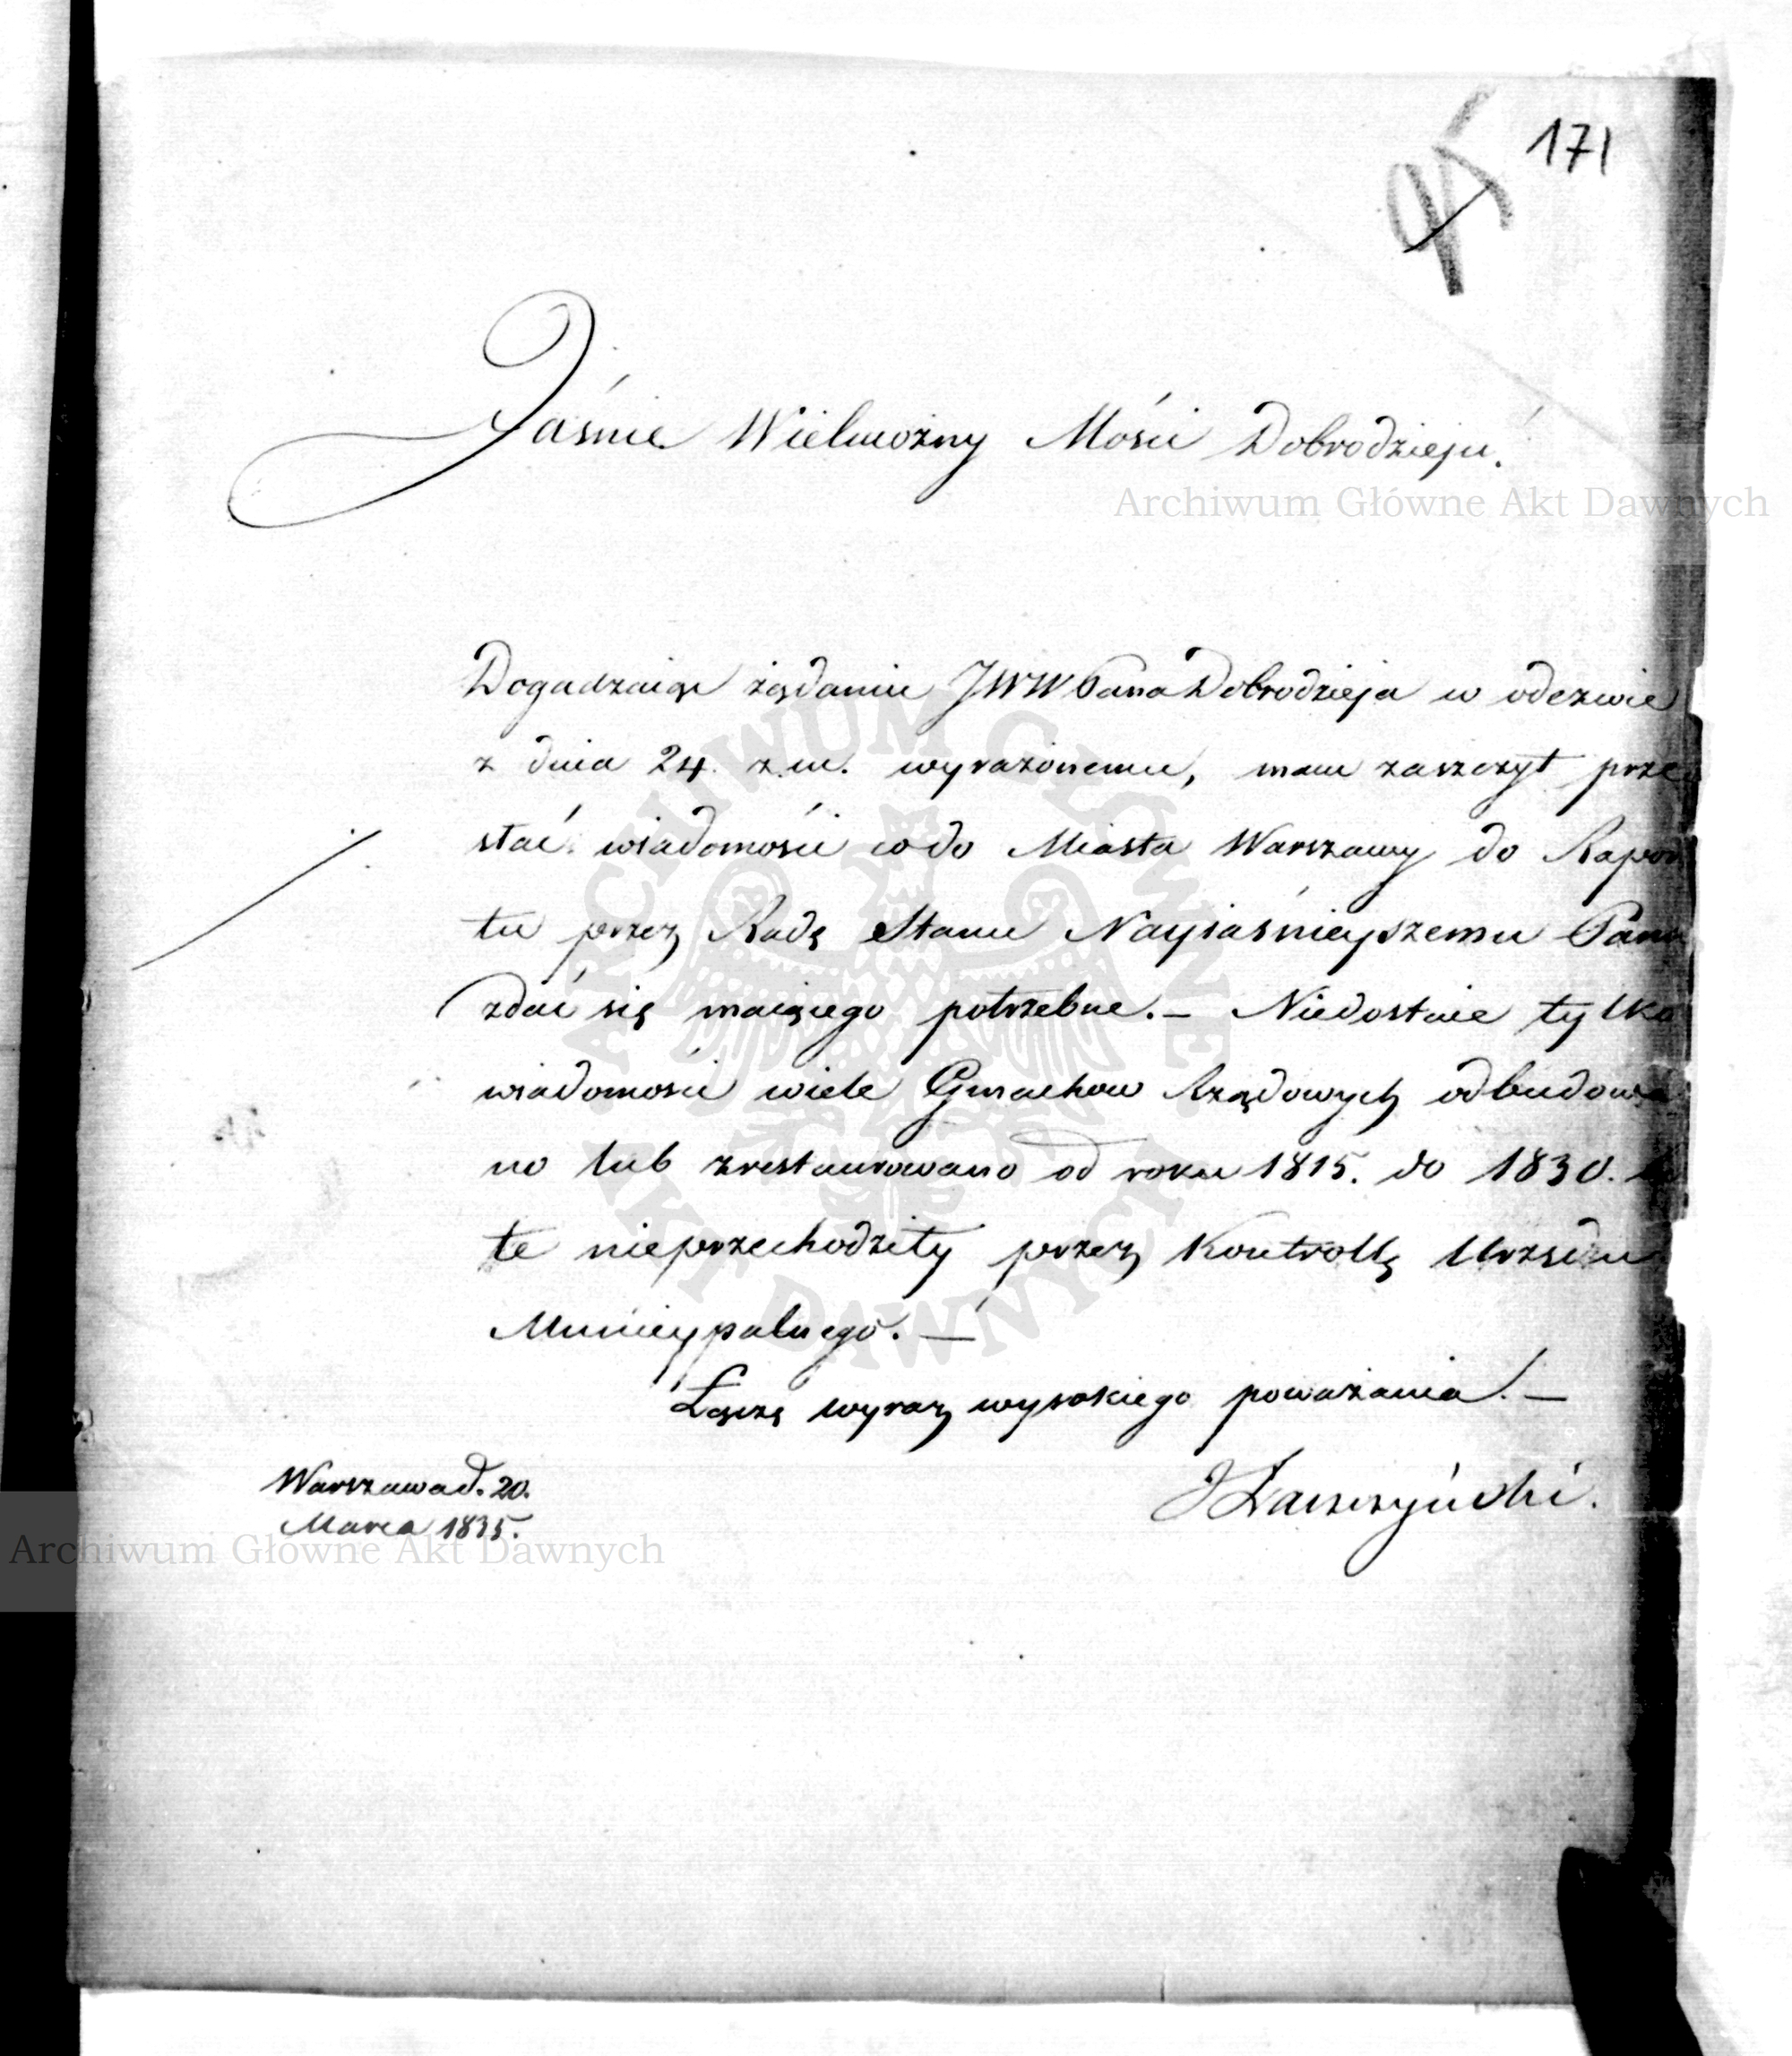 171
95
Jaśnie Wielmożny Mości Dobrodzieju!
Archiwum Główne Akt Dawnych
Dogadzaiąc żądaniu JWW Pana Dobrodzieja w odezwie
z dnia 24. z.m. wyrażonemu, mam zaszczyt prze
słać wiadomości co do Miasta Warszawy do Rapor
tu przez Radę Stanu Nayiaśnieyszemu Panu
zdać się maiącego potrzebne. — Niedostaie tylko
wiadomości wiele Gmachow Rządowych odbudowa
no lub zrestaurowano od roku 1815. do 1830.
te nieprzechodziły przez Kontrollę Urzędu
Municypalnego. —
Łączę wyraz wysokiego poważania. —
Warszawa d. 20.
Marca 1835.
Łaszczyński.
Archiwum Główne Akt Dawnych
ARCHIWUM GŁÓWNE AKT DAWNYCH